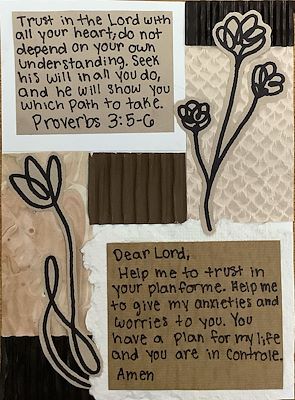 Trust in the Lord with
all your heart, do not
depend on your own
understanding. Seek
his will in all you do,
and he will show you
which path to take.
Proverbs 3:5-6
Dear Lord,
Help me to trust in
your plan forme. Help me
to give my anxieties and
worries to you. You
have a plan for my life
and you are in controle.
Amen